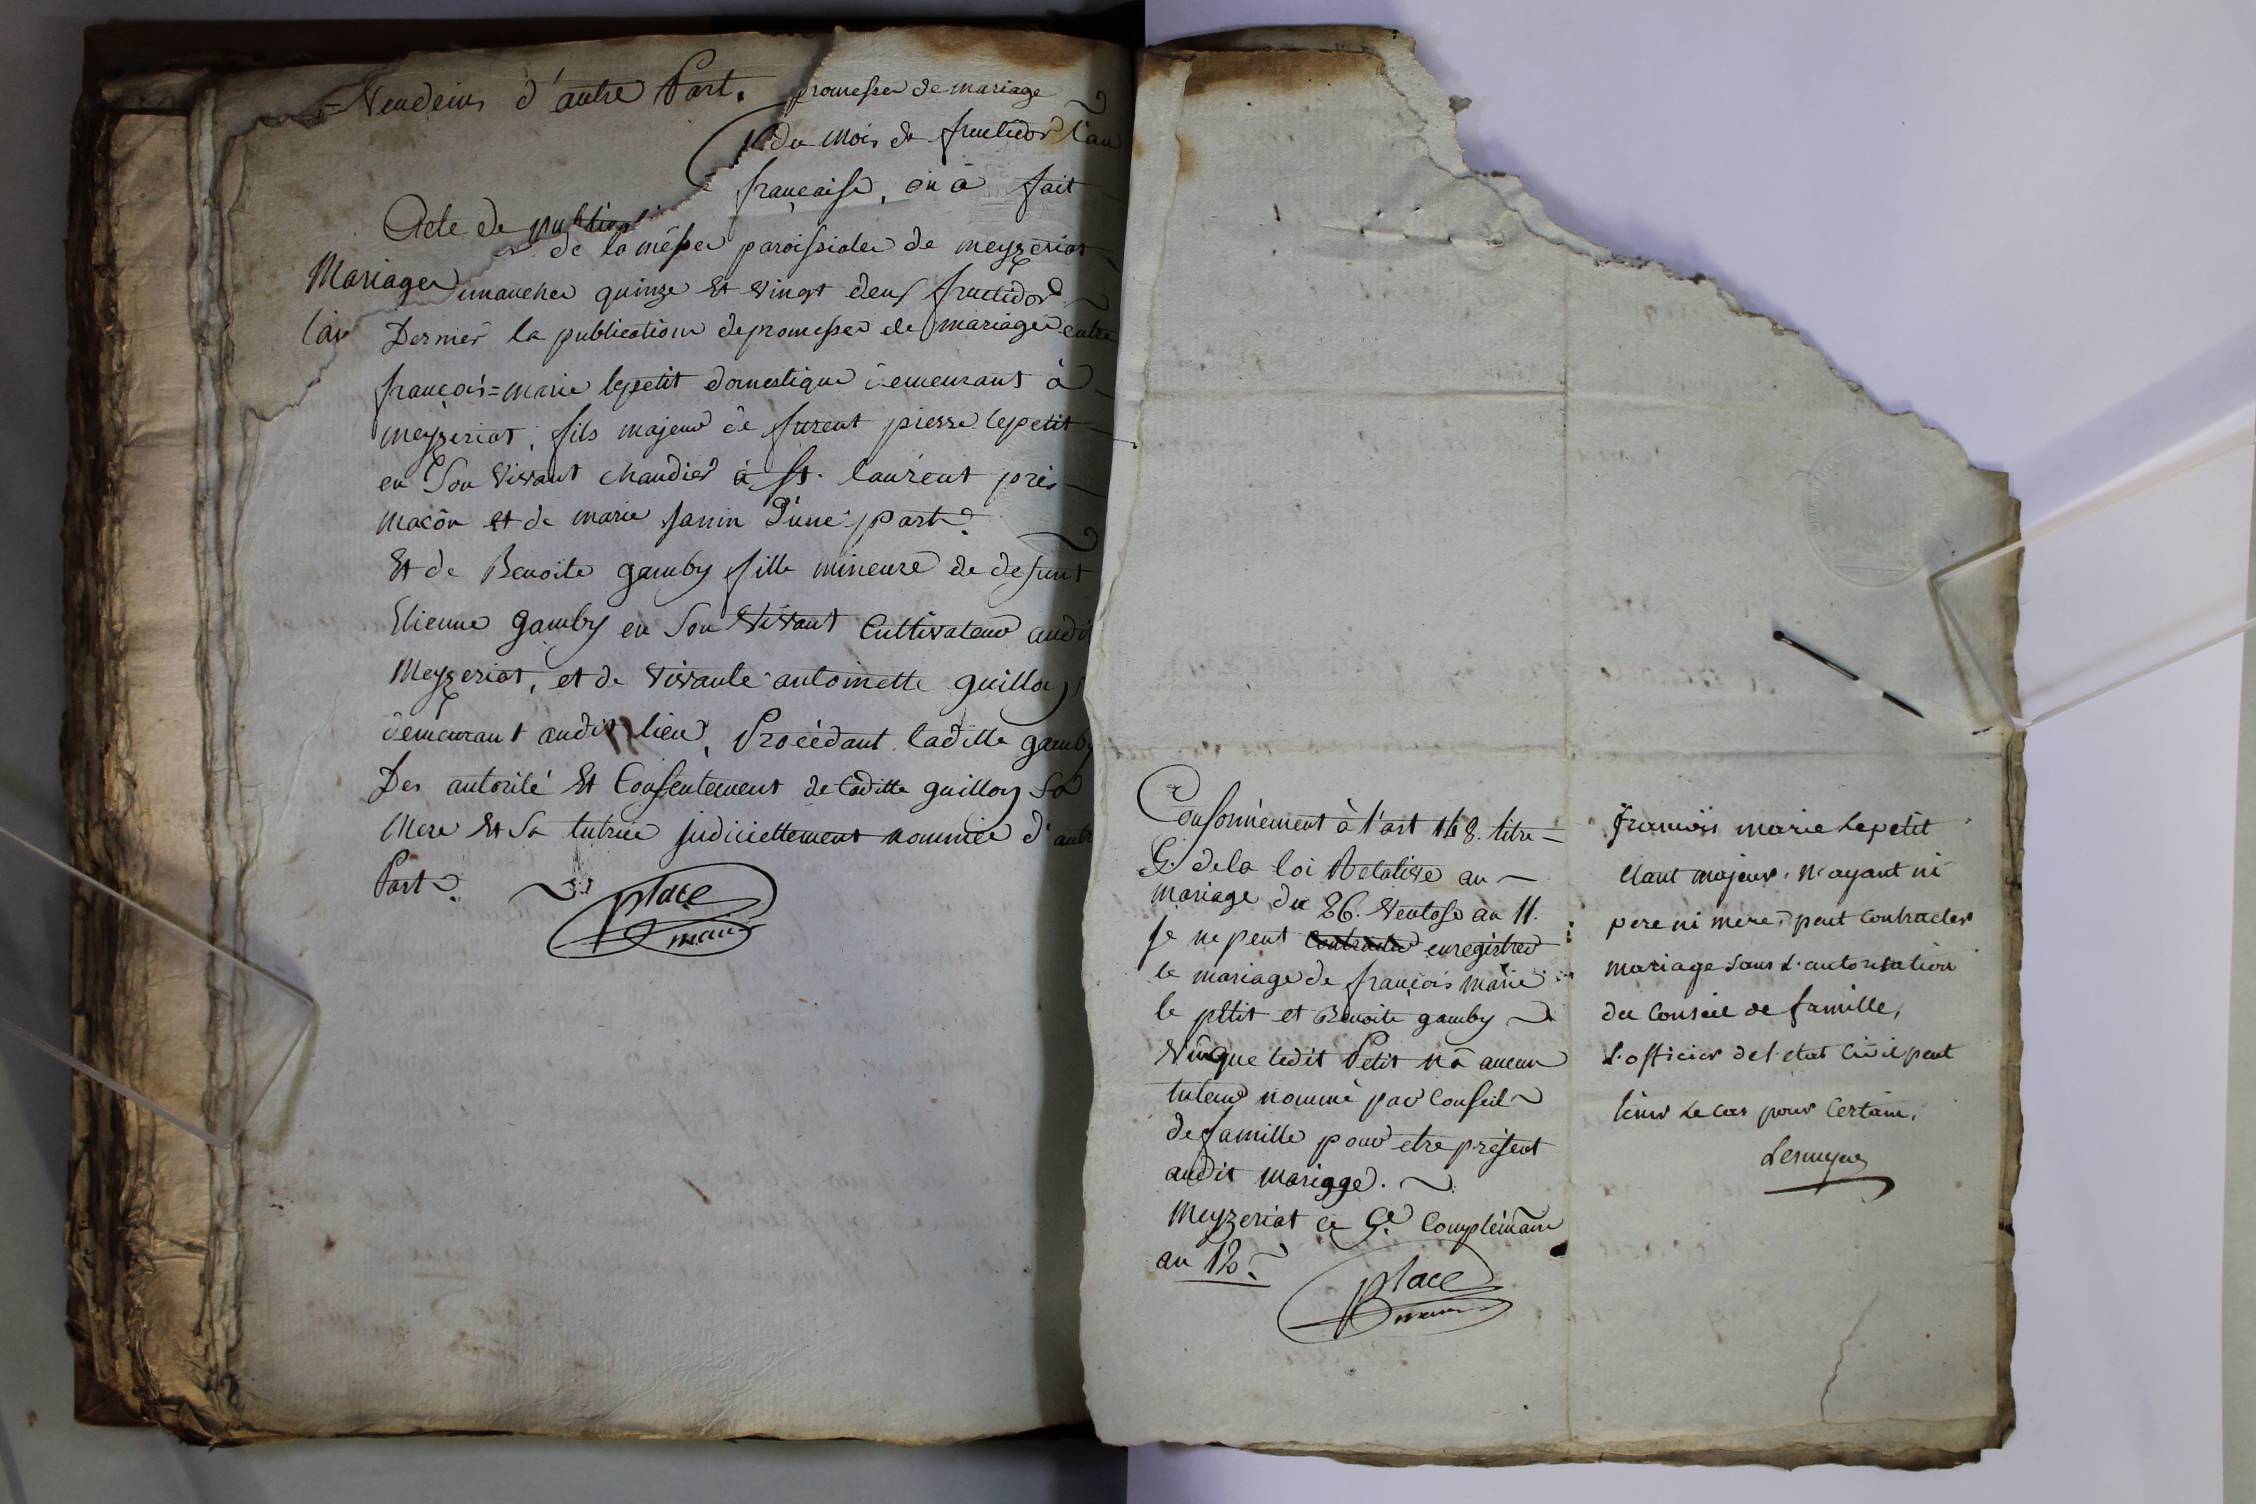 = Vendeins d'autre Part.
promesse de mariage
du mois de fructidor l'an
française, on a fait
Acte de publica
de la messe paroissiale de meyzeriat
Mariage
imanches quinze et vingt deux fructidor
l'an
Dernier la publication de promesse de mariage entre
françois=marie lepetit domestique demeurant à
meyzeriat, fils majeur de furent pierre lepetit
en Son Vivant chandier à St. laurent près
macôn et de marie janin D'une part.
Et de Benoite gamby fille mineure de defunt
Etienne gamby en Son Vivant Cultivateur audit
Meyzeriat, et de Vivante antoinette guilloy
demeurant audit lieu, Procédant laditte gamby
Des autorité Et Consentement de laditte guilloy Sa
Mere Et Sa tutrice judiciellement nommée d'autre
Part.
place
maire
Conformément à l'art 148. titre
5. de la loi Relative au
mariage du 26. Ventose an 11.
je ne peut contracter enregistrer
le mariage de françois marie
le petit et Benoite gamby
Vû que ledit Petit n'a aucun
tuteur nommé par Conseil
de famille pour etre présent
audit mariage.
Meyzeriat ce 5e. Complémaire
an 12.
place
maire
françois marie Lepetit
etant majeur, n'ayant ni
pere ni mere, peut contracter
mariage sans l'autorisation
du conseil de famille,
L'officier de l'etat civil peut
tenir le cas pour certain,